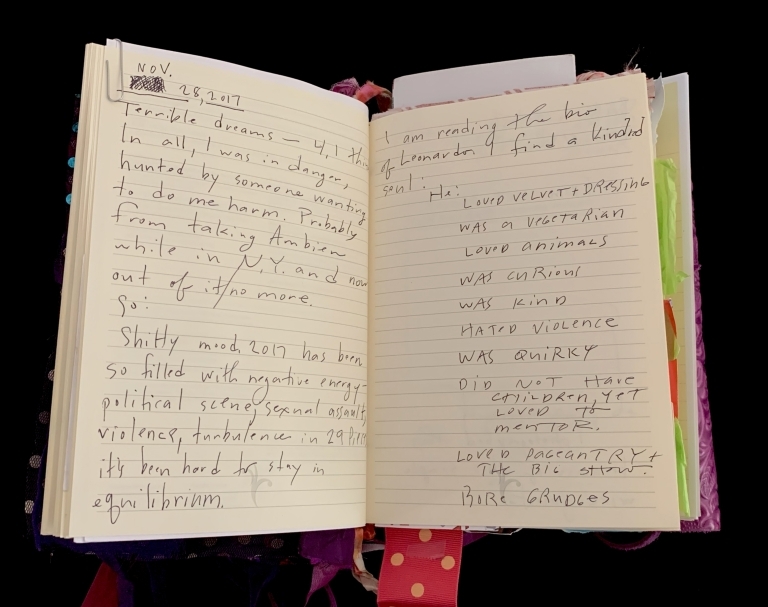 NOV.
28, 2017
Terrible dreams — 4, I
In all, I was in danger,
hunted by someone wanting
to do me harm. Probably
from taking Ambien
while in N.Y. and now
out of it/no more.
So:
Shitty mood, 2017 has been
so filled with negative energy-
political scene, sexual assault,
violence, turbulence in 29
it's been hard to stay in
equilibrium.
I am reading the bio
of Leonardo. I find a kindred
soul:
He:
LOVED VELVET + DRESSING
WAS a VEGETARIAN
LOVED animals
WAS CURIOUS
WAS KIND
HATED VIOLENCE
WAS QUIRKY
DID NOT HAVE
CHILDREN, YET
LOVED TO
MENTOR.
LOVED PAGEANTRY +
THE BIG SHOW.
BORE GRUDGES